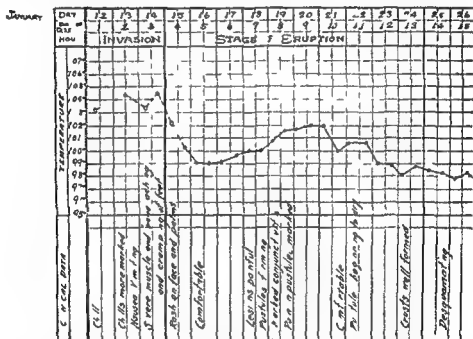 JANUARY
DAY 12 13 14 15 16 17 18 19 20 21 22 23 24 25 26
DAY OF DIS 1 2 3 4 5 6 7 8 9 10 11 12 13 14 15
HOU
INVASION STAGE ERUPTION
TEMPERATURE
107
106
105
104
103
102
101
100
99
98
97
96
95
CLINICAL DATA
Chill
Chills more marked
Nausea Vomiting
Severe muscle and bone aching
and cramping of feet
Rash on face and palms
Comfortable
Lesions painful
Pustules forming
Marked conjunctivitis
Pain in pustules, marked
Comfortable
Pustules beginning to dry
Crusts well formed
Desquamating